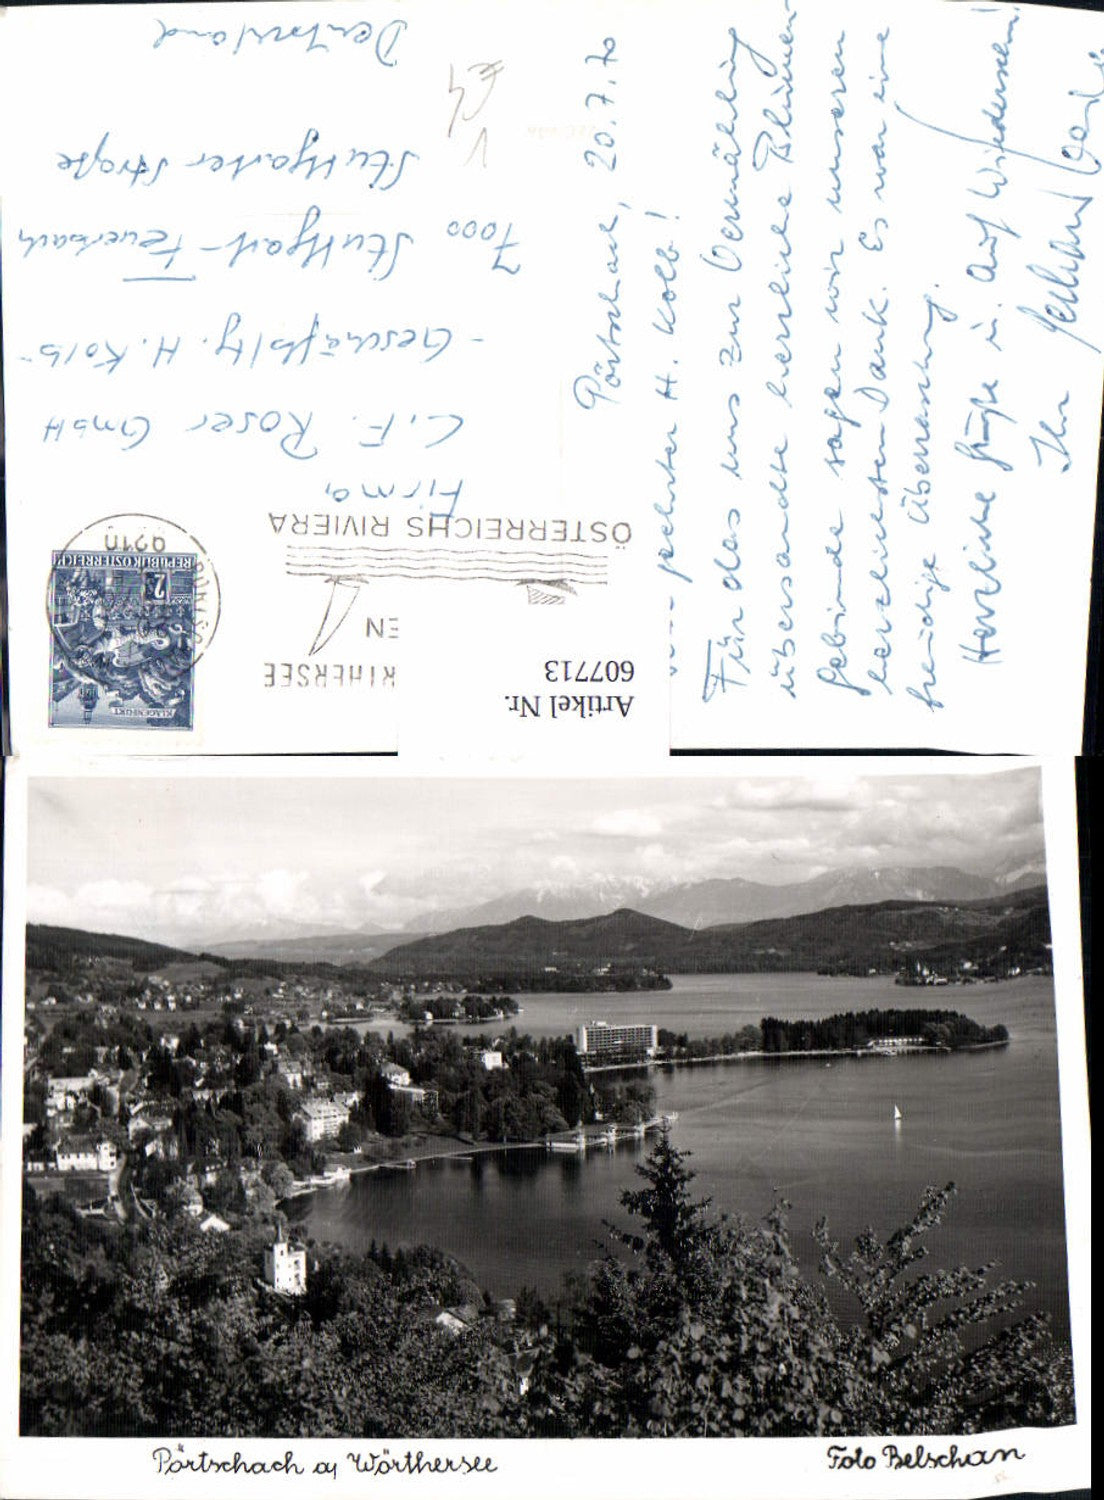 Pörtschach, 20.7.70
geehrter H. Kolb!
Für das uns zur Vermählung
übersandte herrliche Blumen-
gebinde sagen wir unseren
herzlichsten Dank. Es war eine
freudige Überraschung.
Herzliche Grüße u. auf Wiedersehen!
Ihr
Firma
C.F. Roser GmbH
- Geschäftsltg. H. Kolb -
7000 Stuttgart-Feuerbach
Stuttgarter Straße
Deutschland
REPUBLIK ÖSTERREICH
2
KLAGENFURT
9210
RTHERSEE
EN
ÖSTERREICHS RIVIERA
Artikel Nr.
607713
Pörtschach a/ Wörthersee
Foto Belschan